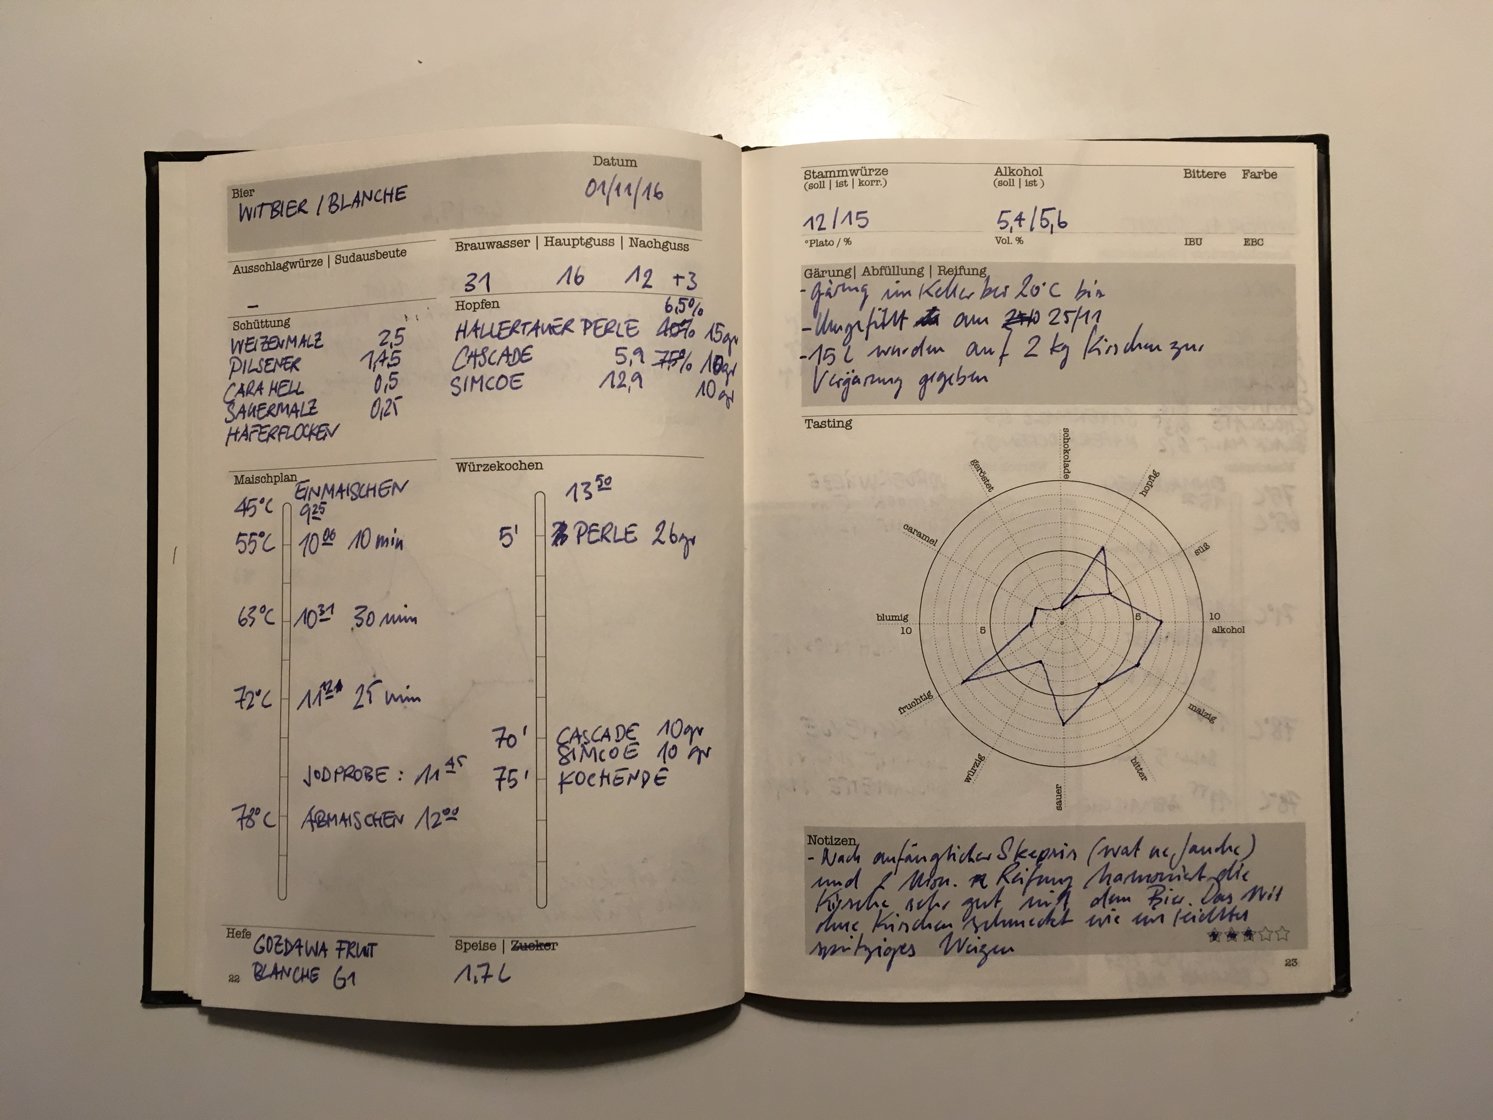 Bier
Datum
WITBIER / BLANCHE
01/11/16
Ausschlagwürze | Sudausbeute
–
Brauwasser | Hauptguss | Nachguss
31 16 12 +3
Schüttung
WEIZENMALZ 2,5
PILSENER 1,45
CARAHELL 0,5
SAUERMALZ 0,25
HAFERFLOCKEN
Hopfen
6,5%
HALLERTAUER PERLE 15gr
CASCADE 5,9 75% 10gr
SIMCOE 12,9 10gr
Maischplan
45°C EINMAISCHEN
9 25
55°C 10 06 10 min
63°C 10 31 30 min
72°C 11 21 25 min
JODPROBE: 11 45
78°C ABMAISCHEN 12 00
Würzekochen
13 50
5' PERLE 26gr
70' CASCADE 10gr
SIMCOE 10 gr
75' KOCHENDE
Hefe
GOZDAWA FRUIT
BLANCHE G1
Speise | Zucker
1,7 L
22
Stammwürze
(soll | ist | korr.)
12/15
°Plato / %
Alkohol
(soll | ist )
5,4/5,6
Vol. %
Bittere Farbe
IBU EBC
Gärung| Abfüllung | Reifung
- Gärung im Keller bei 20°C bis
- Umgefüllt am 25/11
- 15 L wurden auf 2 kg Kirschen zur
Vergärung gegeben
Tasting
schokolade
hopfig
süß
10
alkohol
malzig
bitter
sauer
würzig
fruchtig
blumig
10
5
5
caramel
geröstet
Notizen
- Nach anfänglicher Skepsis (wat ne Jauche)
und 2 Mon. Reifung harmoniert die
Kirsche sehr gut mit dem Bier. Das Wit
ohne Kirschen schmeckt wie ein leichtes
spritziges Weizen
23